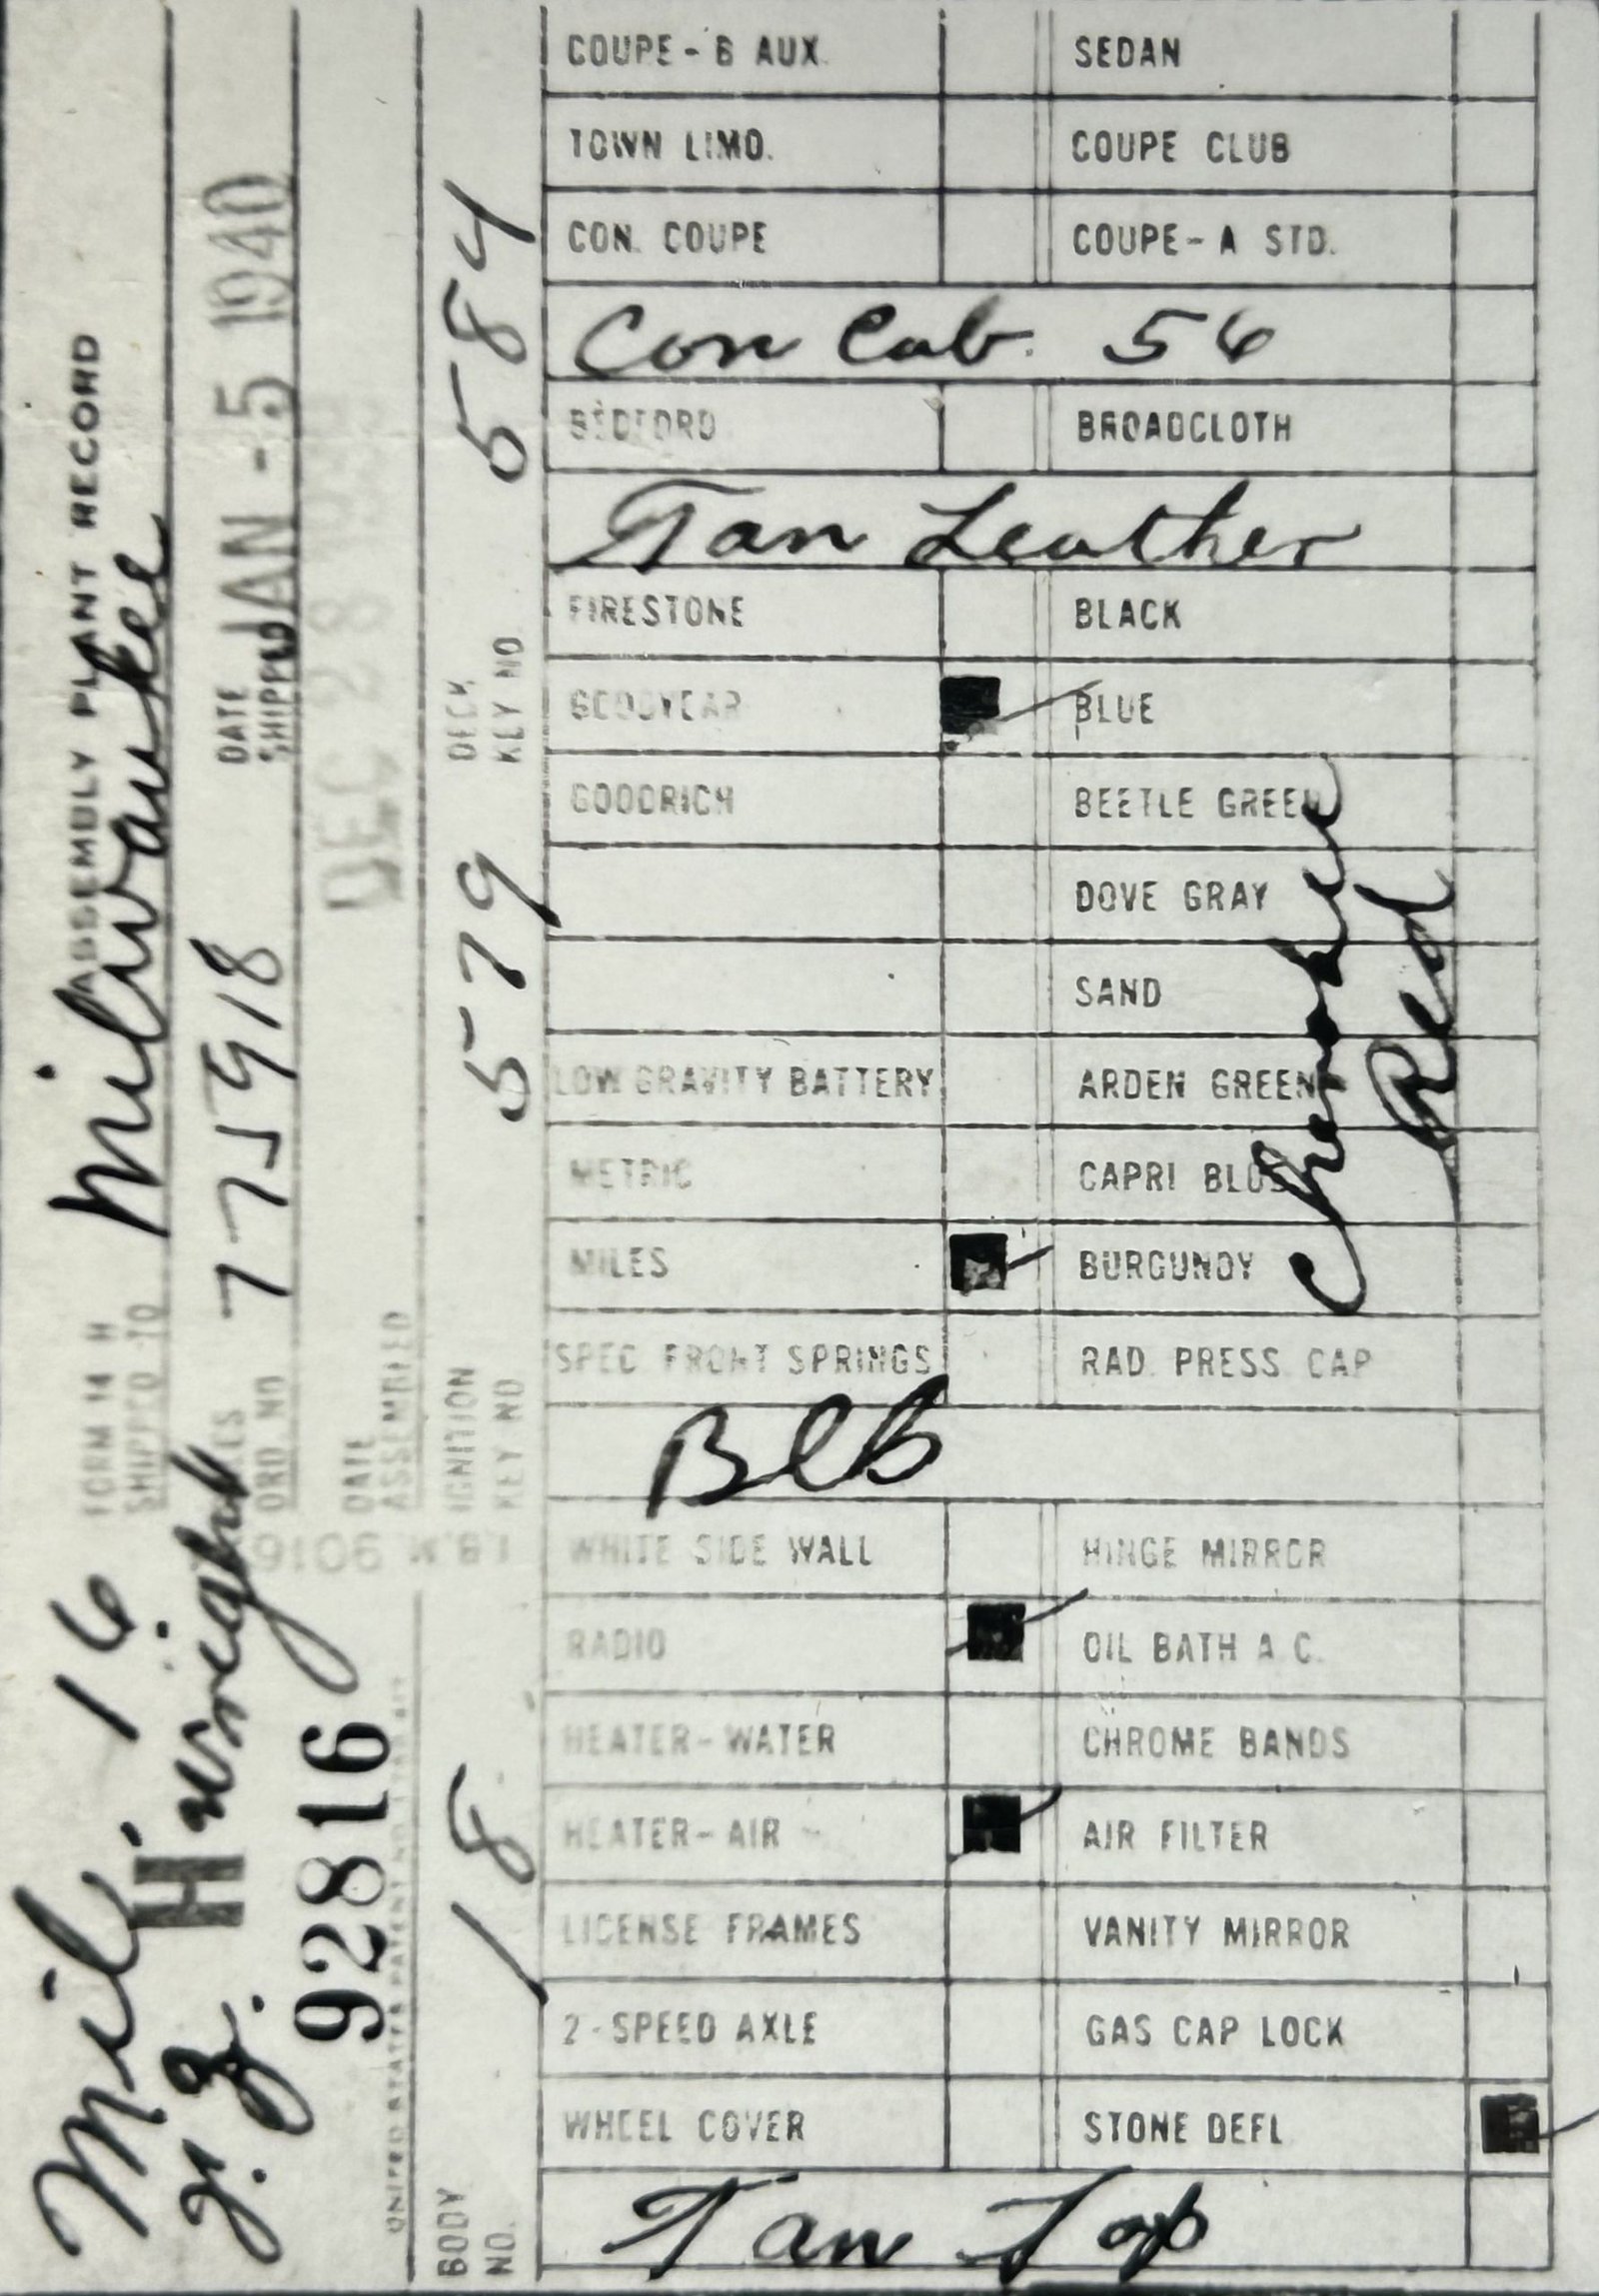 FORM 14 H ASSEMBLY PLANT RECORD
SHIPPED TO Milwaukee
ORD. NO 775918
DATE SHIPPED JAN - 5 1940
DATE ASSEMBLED DEC 28
IGNITION KEY NO 579
DECK KEY NO 584
Mil 16
H
92816
BODY NO. 18
COUPE - B AUX. SEDAN
TOWN LIMO. COUPE CLUB
CON. COUPE COUPE - A STD.
Con Cab. 56
BEDFORD BROADCLOTH
Tan Leather
FIRESTONE BLACK
GOODYEAR BLUE
GOODRICH BEETLE GREEN
DOVE GRAY
SAND
LOW GRAVITY BATTERY ARDEN GREEN
METRIC CAPRI BLUE
MILES BURGUNDY
Cherokee
Red
SPEC FRONT SPRINGS RAD. PRESS. CAP
WHITE SIDE WALL HINGE MIRROR
RADIO OIL BATH A.C.
HEATER - WATER CHROME BANDS
HEATER - AIR AIR FILTER
LICENSE FRAMES VANITY MIRROR
2 - SPEED AXLE GAS CAP LOCK
WHEEL COVER STONE DEFL
Tan Top